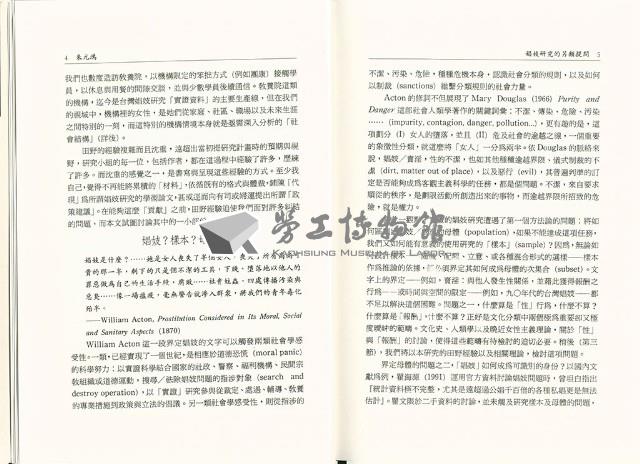 4 朱元鴻
我們也數度造訪教養院，以機構限定的笨拙方式（例如團康）接觸學
員，以休息與用餐的間隙交談，並與少數學員後續通信。教養院這類
的機構，迄今是台灣娼妓研究「實證資料」的主要生產線，但在我們
的視域中，機構裡的女性，是她們從家庭、社區、職場以及未來生涯
之間特別的一刻，而這特別的機構情境本身就是亟需深入分析的「社
會結構」（詳後）。
田野的經驗複雜而且沈重，遠超出當初從研究計畫時的預期與視
野，研究小組的每一位，包括作者，都在這過程中經驗了許多，歷練
了許多。而沈重的感覺之一，是書寫與呈現這些經驗的方式。至少我
自己，覺得不再能將累積的「材料」，依循既有的格式與體裁，鋪陳「代
現」為所謂娼妓研究的學術論文，甚或逕而向有司或媒體提出所謂「政
策建議」。在能夠這麼「貢獻」之前，田野經驗迫使我們面對許多糾結
的問題，而本文試圖討論其中的一小部份
娼妓？樣本？
娼妓是什麼？
貴的那一半，剩下的只是個不潔的工具，下賤、墮落地以他人的
罪惡做為自己的生活手段，腐敗……社會蛀蟲，四處傳播污染與
惡臭……像一場瘟疫，毫無警告就滲入群眾，將我們的青年毒化
殆半。
——William Acton, Prostitution Considered in Its Moral, Social
and Sanitary Aspects (1870)
William Acton 這一段界定娼妓的文字可以觸發兩類社會學感
受性。一類，已經實現了一個世紀，是相應於道德恐慌 (moral panic)
的科學努力：以實證科學結合國家的社政、警察、福利機構、民間宗
教組織或道德運動，搜尋／祛除娼妓問題的指涉對象 (search and
destroy operation)，以「實證」研究參與從裁定、處遇、輔導、教養
的專業措施到政策與立法的倡議。另一類社會學感受性，則從指涉的
娼妓研究的另類提問 5
不潔、污染、危險，種種危機本身，認識社會分類的規則，以及如何
以制裁 (sanctions) 維繫分類規則的社會力量。
Acton 的修詞不但展現了 Mary Douglas (1966) Purity and
Danger 這部社會人類學著作的關鍵詞彙：不潔、傳染、危險、污染
…… (impurity, contagion, danger, pollution…)，更有趣的是，這
項劃分 (I) 女人的墮落，並且 (II) 危及社會的逾越之線，一個重要
的象徵性分類，就這麼將「女人」一分為兩半。依 Douglas 的脈絡來
說，娼妓／賣淫，性的不潔，也如其他種種逾越界限、儀式制裁的不
潔 (dirt, matter out of place)，以及惡行 (evil)，其普遍判準的訂
定是否能夠成為客觀主義科學的任務，都是個問題。不潔，來自要求
順從的秩序，是劃限活動所創造出來的事物，而逾越界限所招致的危
險，就是權力。
娼妓研究遭遇了第一個方法論的問題：將如
母體 (population)，如果不能達成這項任務，
我們又如何能有意義的使用研究的「樣本」(sample)？因為，無論如
立意、或各種混合形式的選樣——樣本
作為推論的依據，
界定其如何成為母體的次集合 (subset)。文
字上的界定——例如，賣淫：與他人發生性關係，並藉此獲得報酬之
行為——或時間與空間的限定——例如，九〇年代的台灣娼妓——都
不足以解決這個困難。問題之一，什麼算是「性」行為，什麼不算？
什麼算是「報酬」，什麼不算？正好是文化分類中兩個極為重要卻又極
度曖昧的範疇。文化史、人類學以及晚近女性主義理論，關於「性」
與「報酬」的討論，使得這些範疇有待檢討的迫切必要。稍後（第三
節），我們將以本研究的田野經驗以及相關理論，檢討這項問題。
界定母體的問題之二，「娼妓」如何成為可識別的身份？以國內文
獻為例，瞿海源 (1991) 運用官方資料討論娼妓問題時，曾坦白指出
「統計資料極不完整，尤其是遠超過公娼千百倍的各種私娼更是無法
估計」。瞿文限於二手資料的討論，並未觸及研究樣本及母體的問題，
勞工博物館
KAOHSIUNG MUSEUM OF LABOR